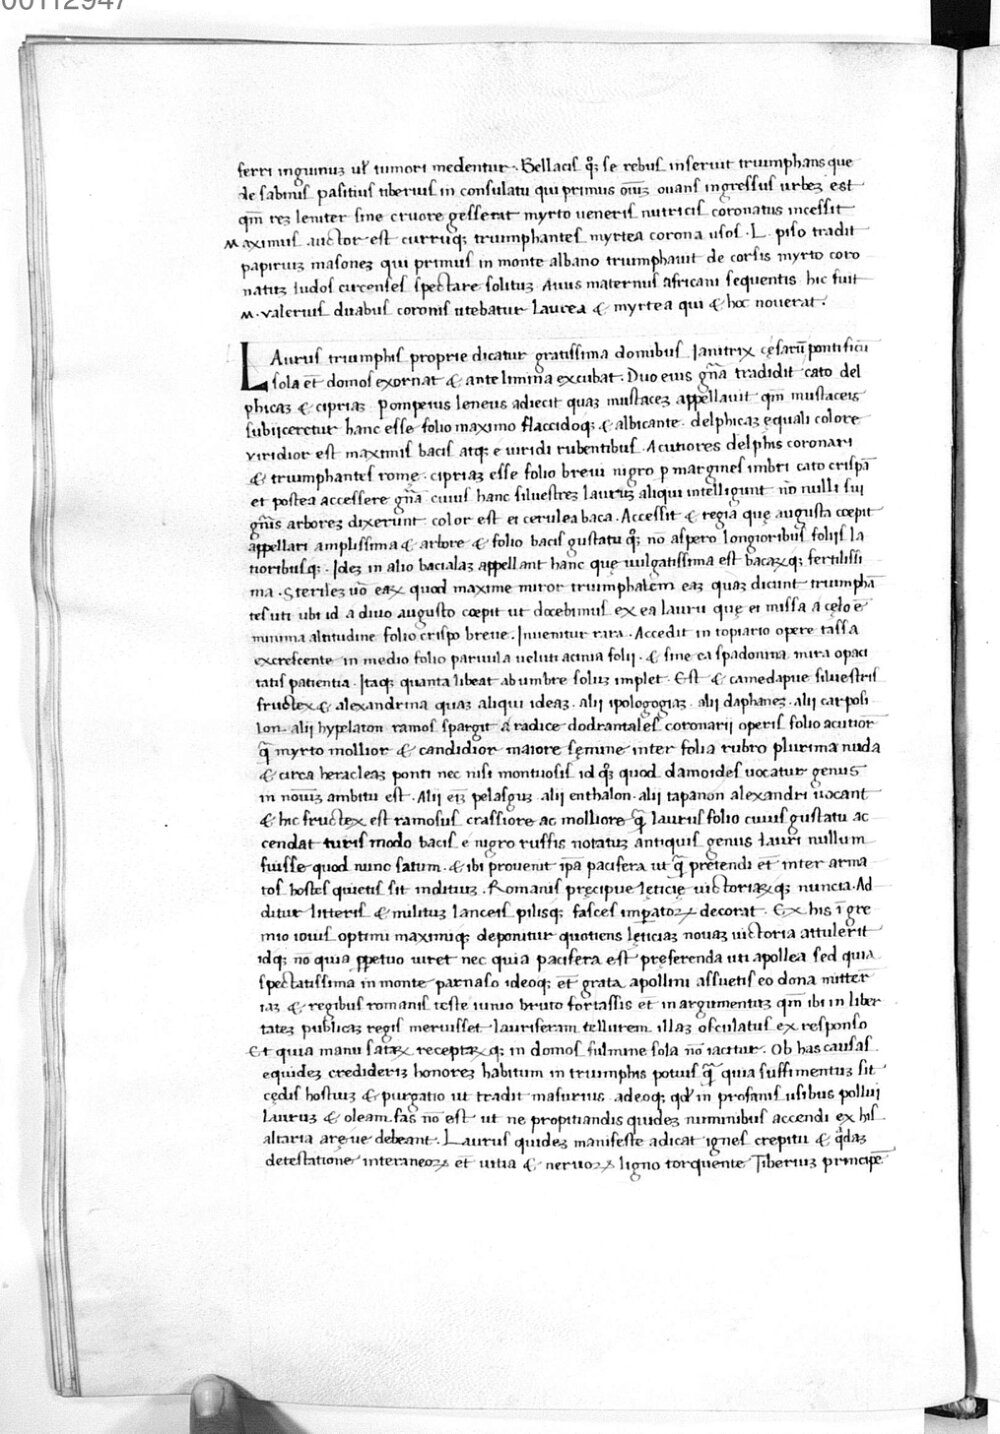 00112947
ferri inguinuȝ ul̛ tumori medentur. Bellacis qȝ se rebus inseruit triumphans que
de sabinis pasitius tiberius in consulatu qui primus om̅iȝ ouans ingressus urbeȝ est
qm̅ reȝ leniter sine cruore gesserat myrto ueneris nutricis coronatus incessit
Maximus auctor est curruqȝ triumphantes myrtea corona usos. L. piso tradit
papiriuȝ masoneȝ qui primus in monte albano triumphauit de corsis myrto coro
natuȝ ludos circenses spectare solituȝ. Auus maternus africani sequentis hic fuit
M. valerius duabus coronis utebatur laurea & myrtea qui & hoc nouerat.
LAurus triumphis proprie dicatur gratissima domibus Ianitrix cęsarū pontificū
sola et̅ domos exornat & ante limina excubat. Duo eius gn̅a tradidit cato del
phicaȝ & cipriaȝ pompeius leneus adiecit quaȝ mustaceȝ appellauit qm̅ mustaceis
subijceretur hanc esse folio maximo flaccidoqȝ & albicante. delphicaȝ ęquali colore
viridior est maximis bacis atqȝ e uiridi rubentibus. Acutiores delphis coronari
& triumphantes romę. cipriaȝ esse folio breui nigro p margines imbri cato crispā
et postea accessere gn̅a cuius hanc siluestreȝ lauruȝ aliqui intelligunt no̅ nulli sui
gn̅is arboreȝ dixerunt color est ei cerulea baca. Accessit & regia quę augusta cœpit
appellari amplissima & arbore & folio bacis gustatu qȝ no̅ aspero longioribus folijs la
tioribusqȝ. Ideȝ in alio bacialaȝ appellant hanc quę uulgatissima est bacaꝝqȝ fertilissi
ma. Sterileȝ uo̅ eaꝝ quod maxime miror triumphalem eaȝ quaȝ dicunt triumphā
tes uti ubi id a diuo augusto cœpit ut docebimus ex ea lauru quę ei missa a cęlo ē
minima altitudine folio crispo breue. Inuenitur rara. Accedit in topiario opere tassa
excrescente in medio folio paruula ueluti acinia folij. & sine ea spadonina mira opaci
tatis patientia. Itaqȝ quanta libeat ab umbre soluȝ implet. Est & camedapue siluestris
fructex & alexandrina quaȝ aliqui ideas. alij ipologogiaȝ. alij daphaneȝ. alij carposi
lon. alij hypelaton ramos spargit a radice dodrantales coronarij operis folio acutior̅
q̅ myrto mollior & candidior maiore sęmine inter folia rubro plurima nuda
& circa heracleaȝ ponti nec nisi montuosis id qȝ quod damoides uocatur genus
in nouiȝ ambitu est. Alij eiȝ pelasguȝ. alij enthalon. alij tapanon alexandri uocant
& hic fructex est ramosus crassiore ac molliore q̅ laurus folio cuius gustatu ac
cendat turis modo bacis e nigro russis notatuȝ antiquis genus lauri nullum
fuisse quod nunc satum. & ibi prouenit ip̅a pacifera ut q̅ pretendi et̅ inter arma
tos hostes quietis sit indituȝ. Romanis pręcipue lęticię uictoriaꝝqȝ nuncia. Ad
ditur litteris & milituȝ lanceis pilisqȝ fasces imperatoꝝ decorat. Ex his i̅ gre
mio iouis optimi maximiqȝ deponitur quotiens lęticiaȝ nouaȝ uictoria attulerit
idqȝ no̅ quia ppetuo uiret nec quia pacifera est pręferenda uti apollea sed quia
spectatissima in monte parnaso ideoqȝ et̅ grata apollini assuetis eo dona mitter̅
iaȝ & regibus romanis teste iunio bruto fortassis et̅ in argumentuȝ qm̅ ibi in liber
tateȝ publicaȝ regis meruisset lauriferam tellurem illaȝ osculatus ex responso
Et quia manu sataꝝ receptaꝝqȝ in domos fulmine sola no̅ iacitur. Ob has causas
equideȝ crediderіȝ honoreȝ habitum in triumphis potuis q̅ quia suffimentuȝ sit
cędis hostuiȝ & purgatio ut tradit masurius. adeoqȝ qd̛ in profanis usibus pollui
lauruȝ & oleam fas no̅ est ut ne propitiandis quideȝ numinibus accendi ex his
altaria aręue debeant. Laurus quideȝ manifeste adicat ignes crepitu & qdaȝ
detestatione interaneoꝝ et̅ uitia & neruoꝝ ligno torquente Tiberiuȝ principē